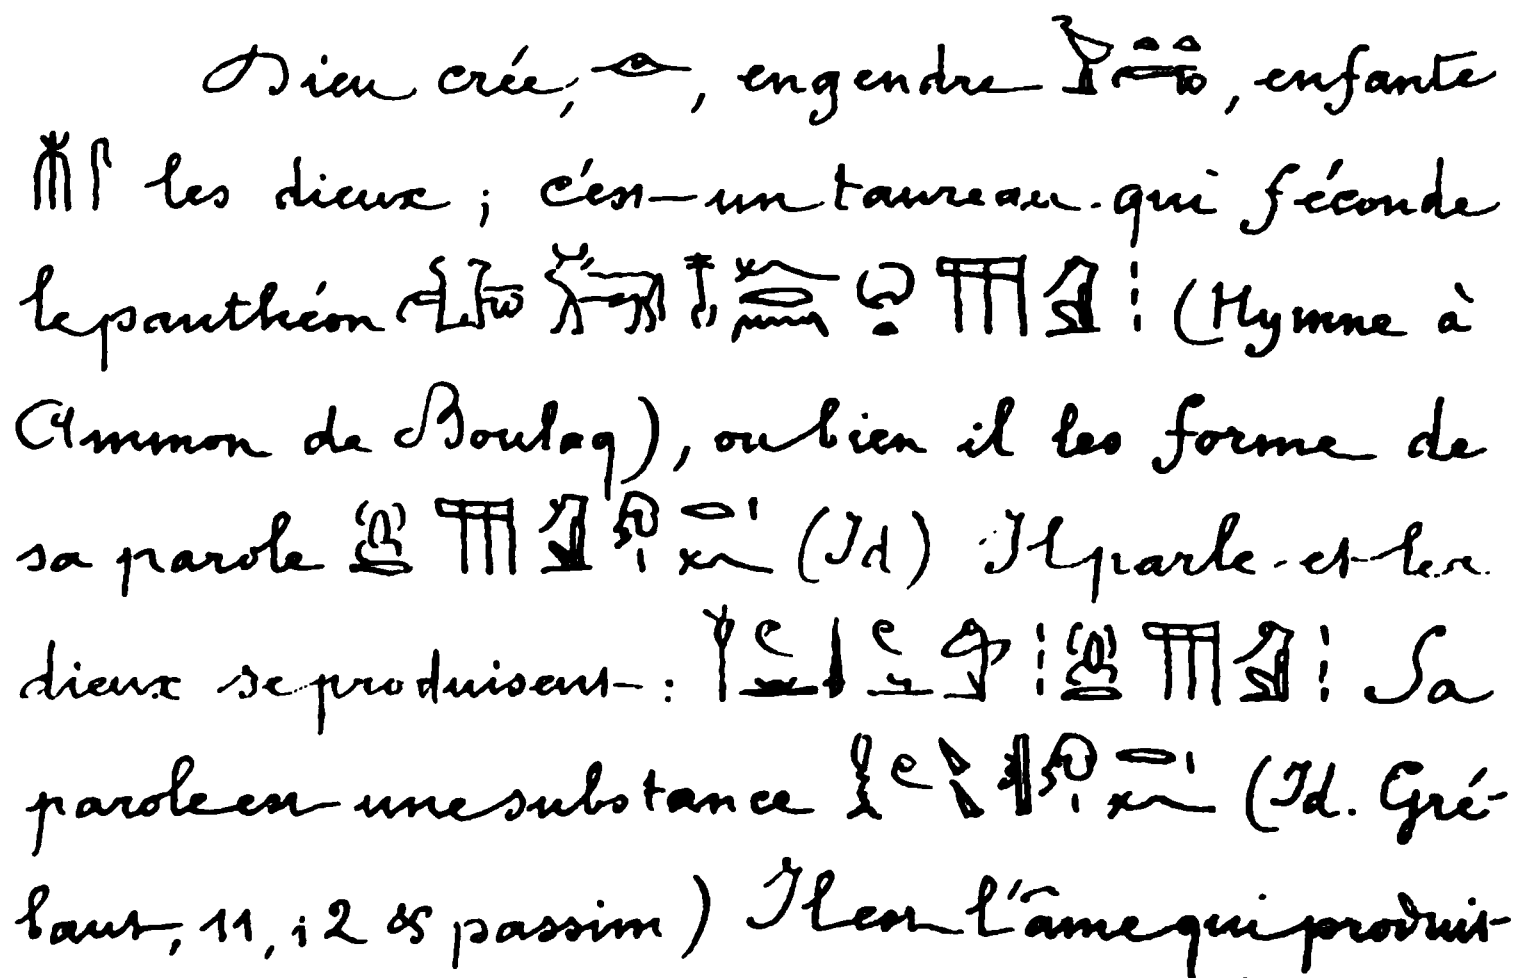 Dieu crée, 𓁹, engendre, enfante
𓄟𓋴 les dieux ; c'est un taureau qui féconde
le panthéon (Hymne à
Ammon de Boulaq), ou bien il les forme de
sa parole (Id) Il parle et les
dieux se produisent : Sa
parole est une substance (Id. Gré-
baut, 11, 12 & passim) Il est l'âme qui produit